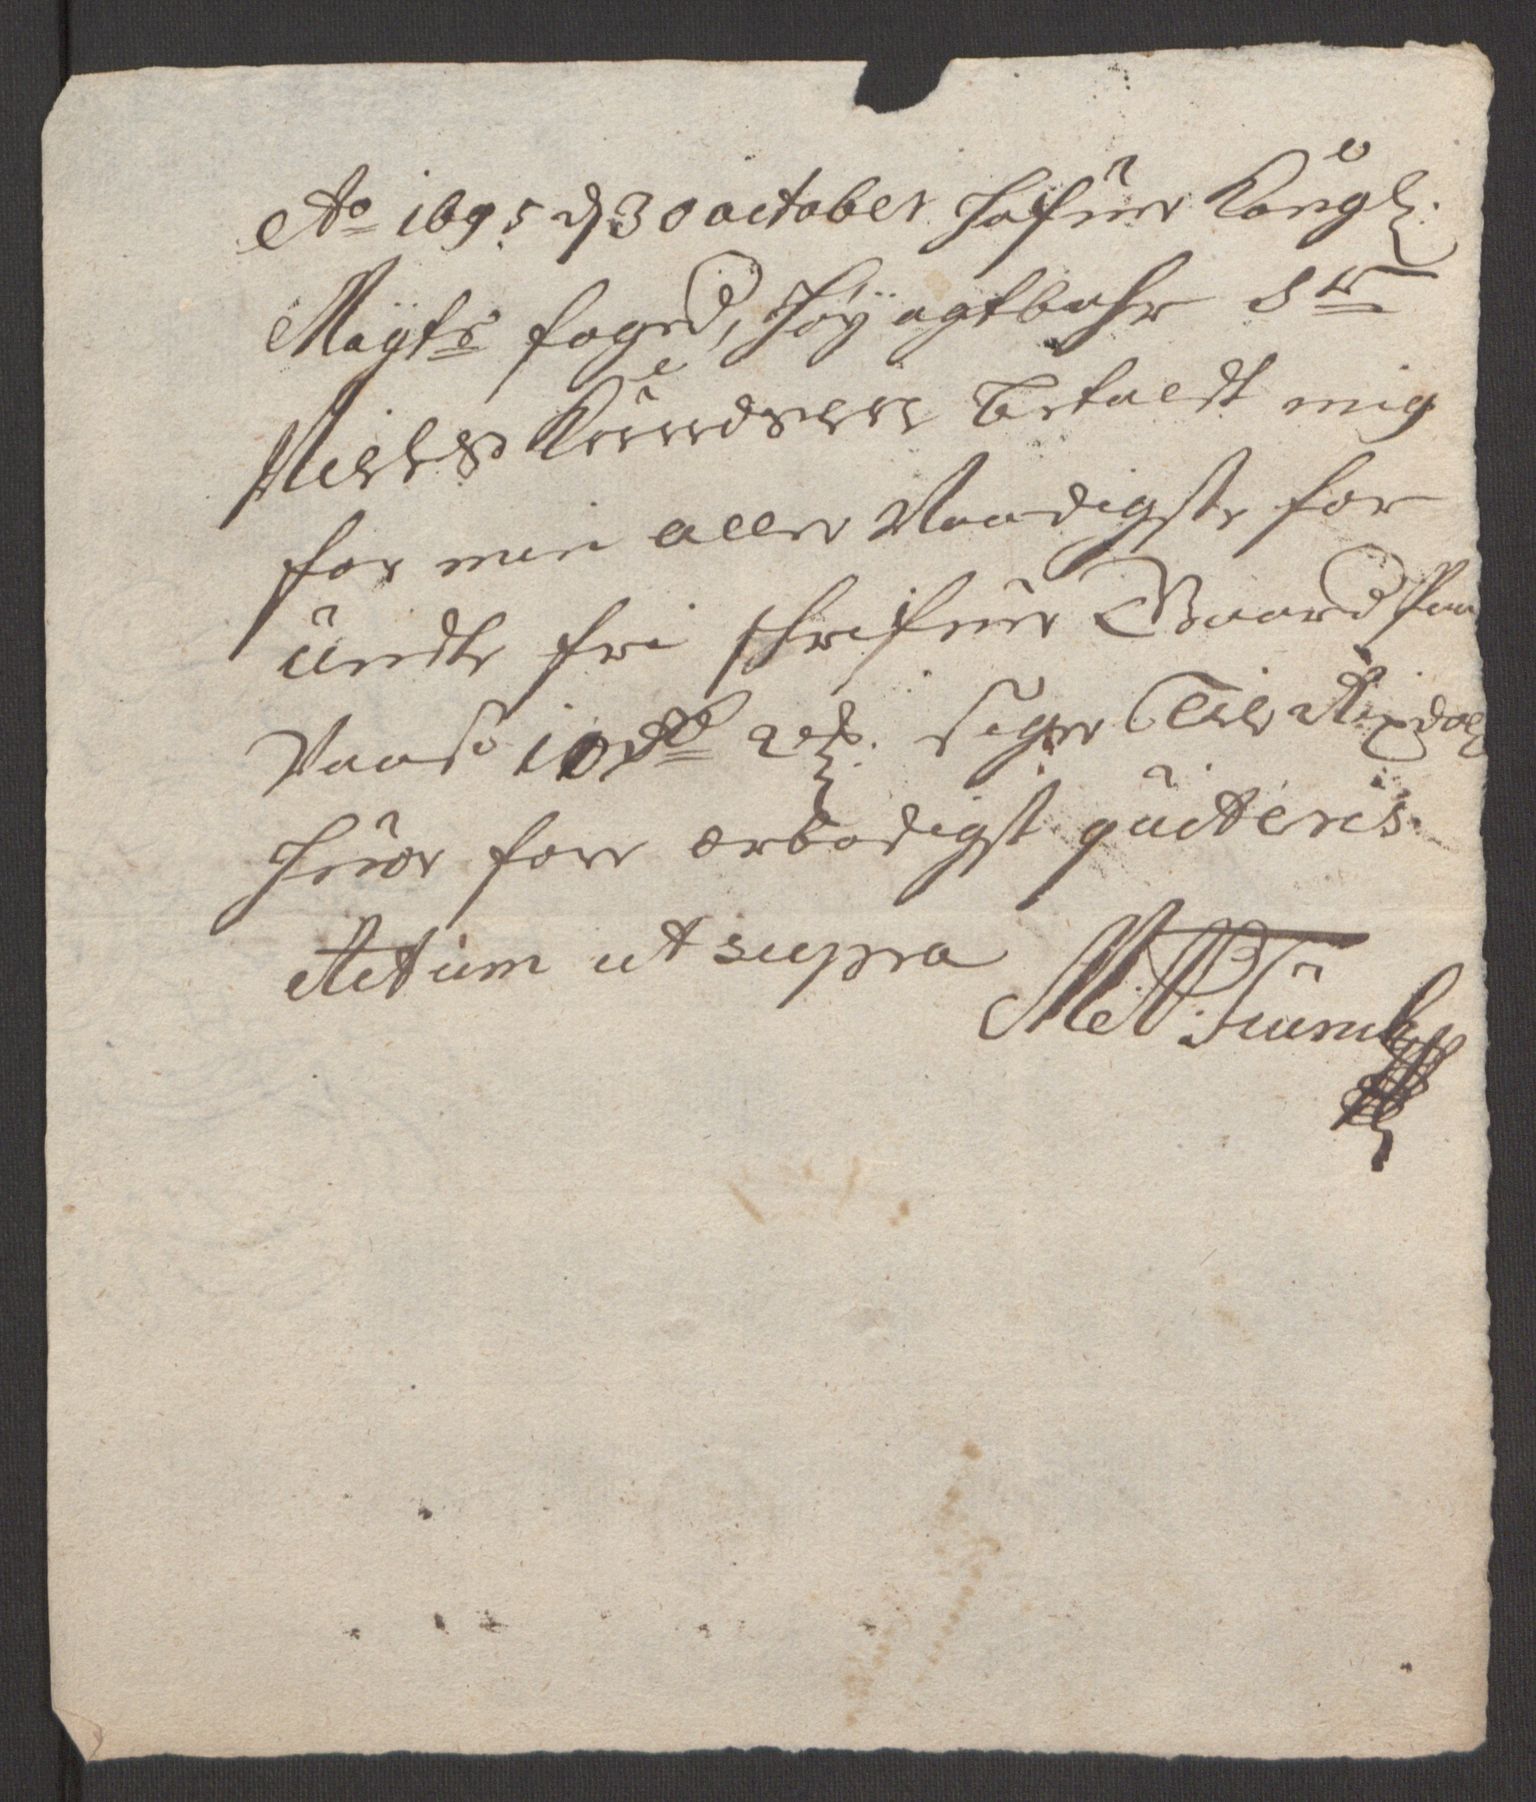 Ao 1695 d 30 october hafuer Kongl:
Maÿts foged, Høÿagtbahr Sr
Niels Knudsen betaldt mig
for min aller Naadigste for
undte fri schrifuer Gaard Paa
Naas 10 rdr siger Tie Rixdol
huor fore ærbødigst quiteris
Actum ut supra